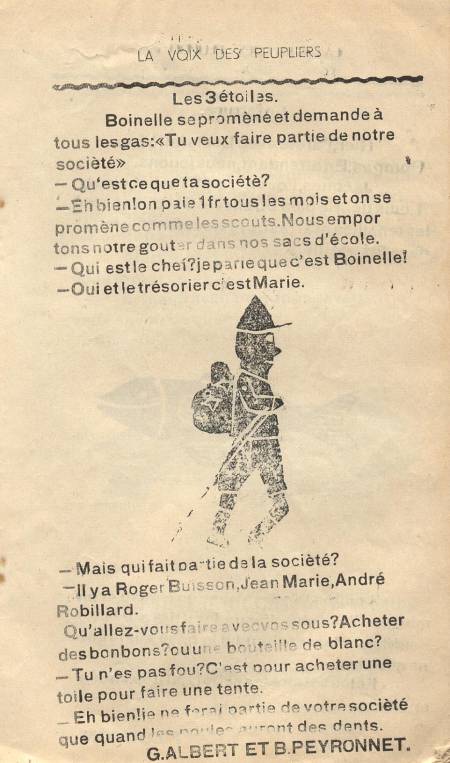 LA VOIX DES PEUPLIERS
Les 3 étoiles.
Boinelle se promène et demande à
tous les gas:«Tu veux faire partie de notre
socièté»
— Qu'est ce que ta socièté?
— Eh bien!on paie 1fr tous les mois et on se
promène comme les scouts.Nous empor
tons notre gouter dans nos sacs d'école.
— Qui est le chef?je parie que c'est Boinelle!
— Oui et le trésorier c'est Marie.
— Mais qui fait partie de la socièté?
— Il y a Roger Buisson,Jean Marie,André
Robillard.
Qu'allez-vous faire avec vos sous?Acheter
des bonbons?ou une bouteille de blanc?
— Tu n'es pas fou?C'est pour acheter une
toile pour faire une tente.
— Eh bien!je ne ferai partie de votre socièté
que quand les poules auront des dents.
G.ALBERT ET B.PEYRONNET.